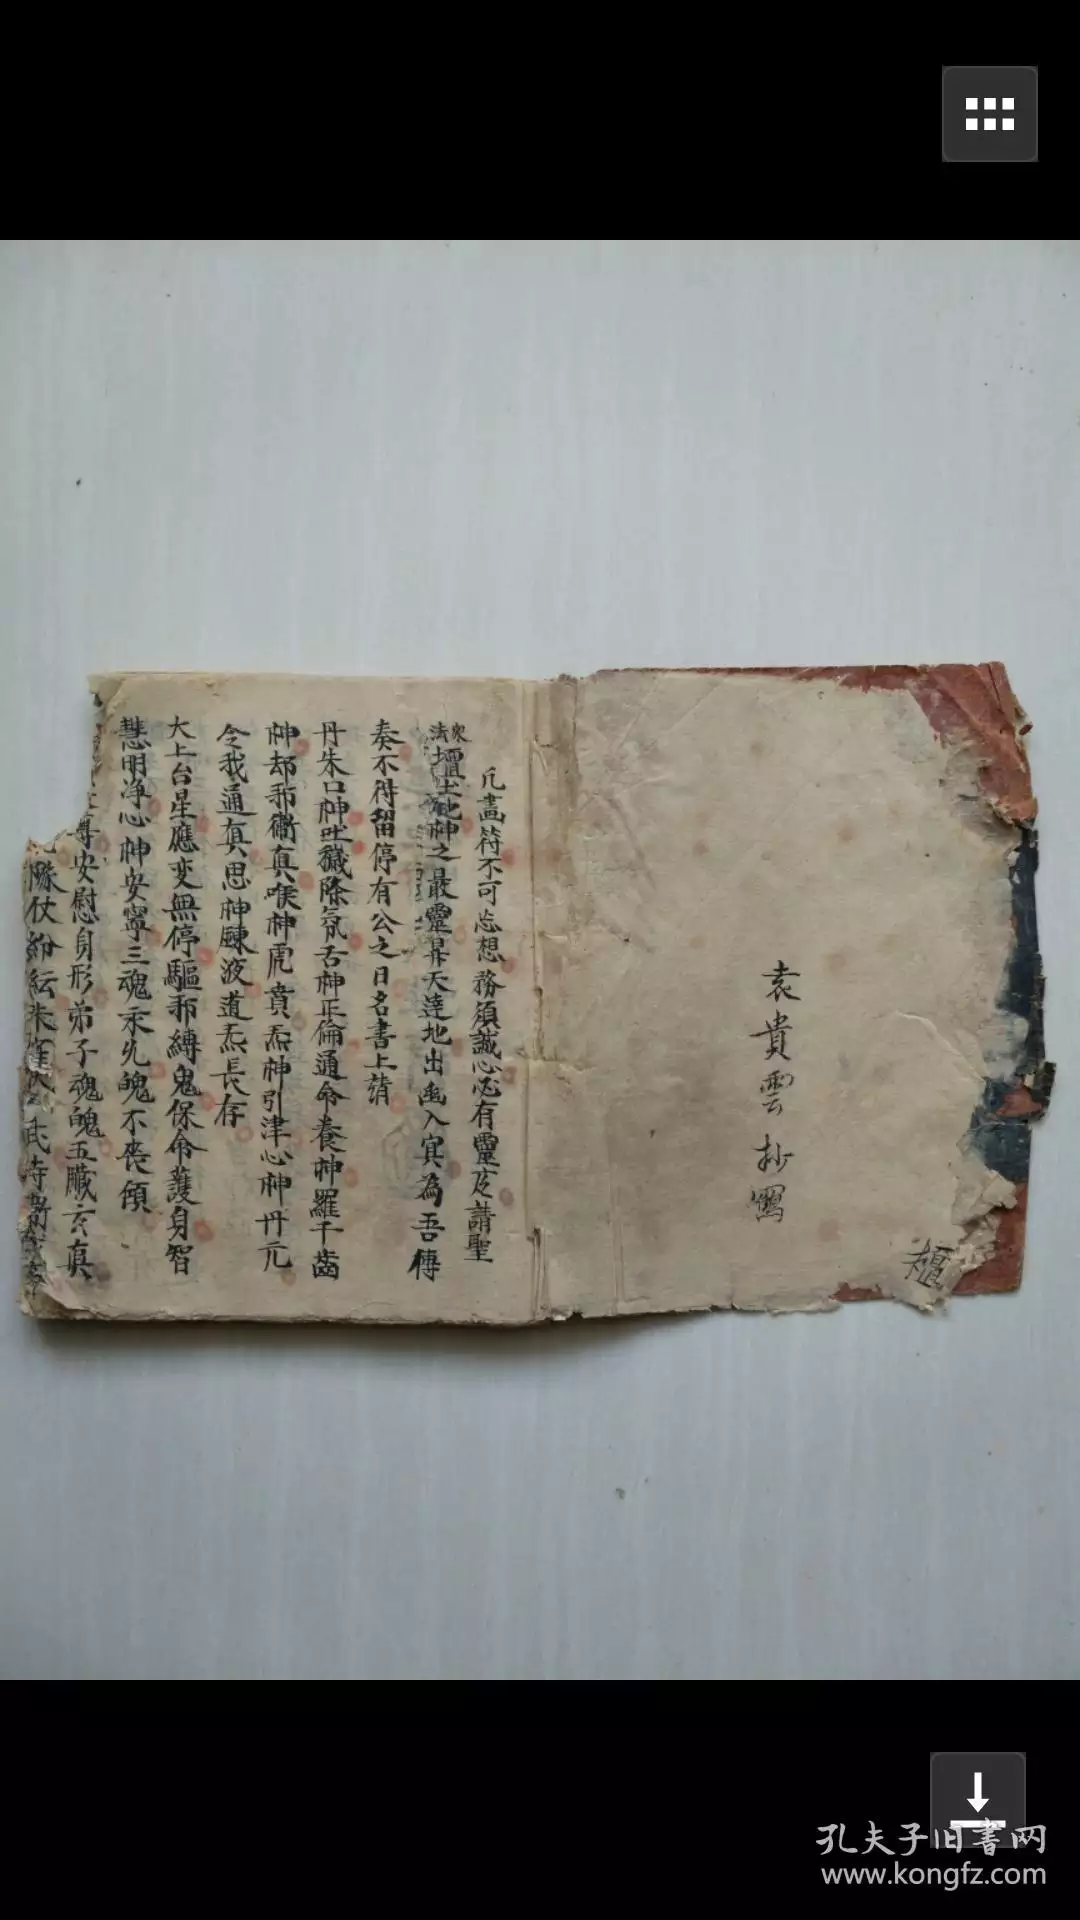 袁貴雲抄寫
凡畫符不可忘想務須誠心必有靈及請聖
衆法壇土地神之最靈昇天達地出幽入冥為吾傳
奏不得留停有公之日名書上請
丹朱口神吐穢除氛舌神正倫通命養神羅千齒
神却邪衛真喉神虎賁炁神引津心神丹元
令我通真思神鍊液道炁長存
大上台星應变無停驅邪縛鬼保命護身智
慧明淨心神安寧三魂永久魄不喪傾
尊安慰身形弟子魂魄五臟玄真
隊仗紛紜朱
孔夫子旧書网
www.kongfz.com